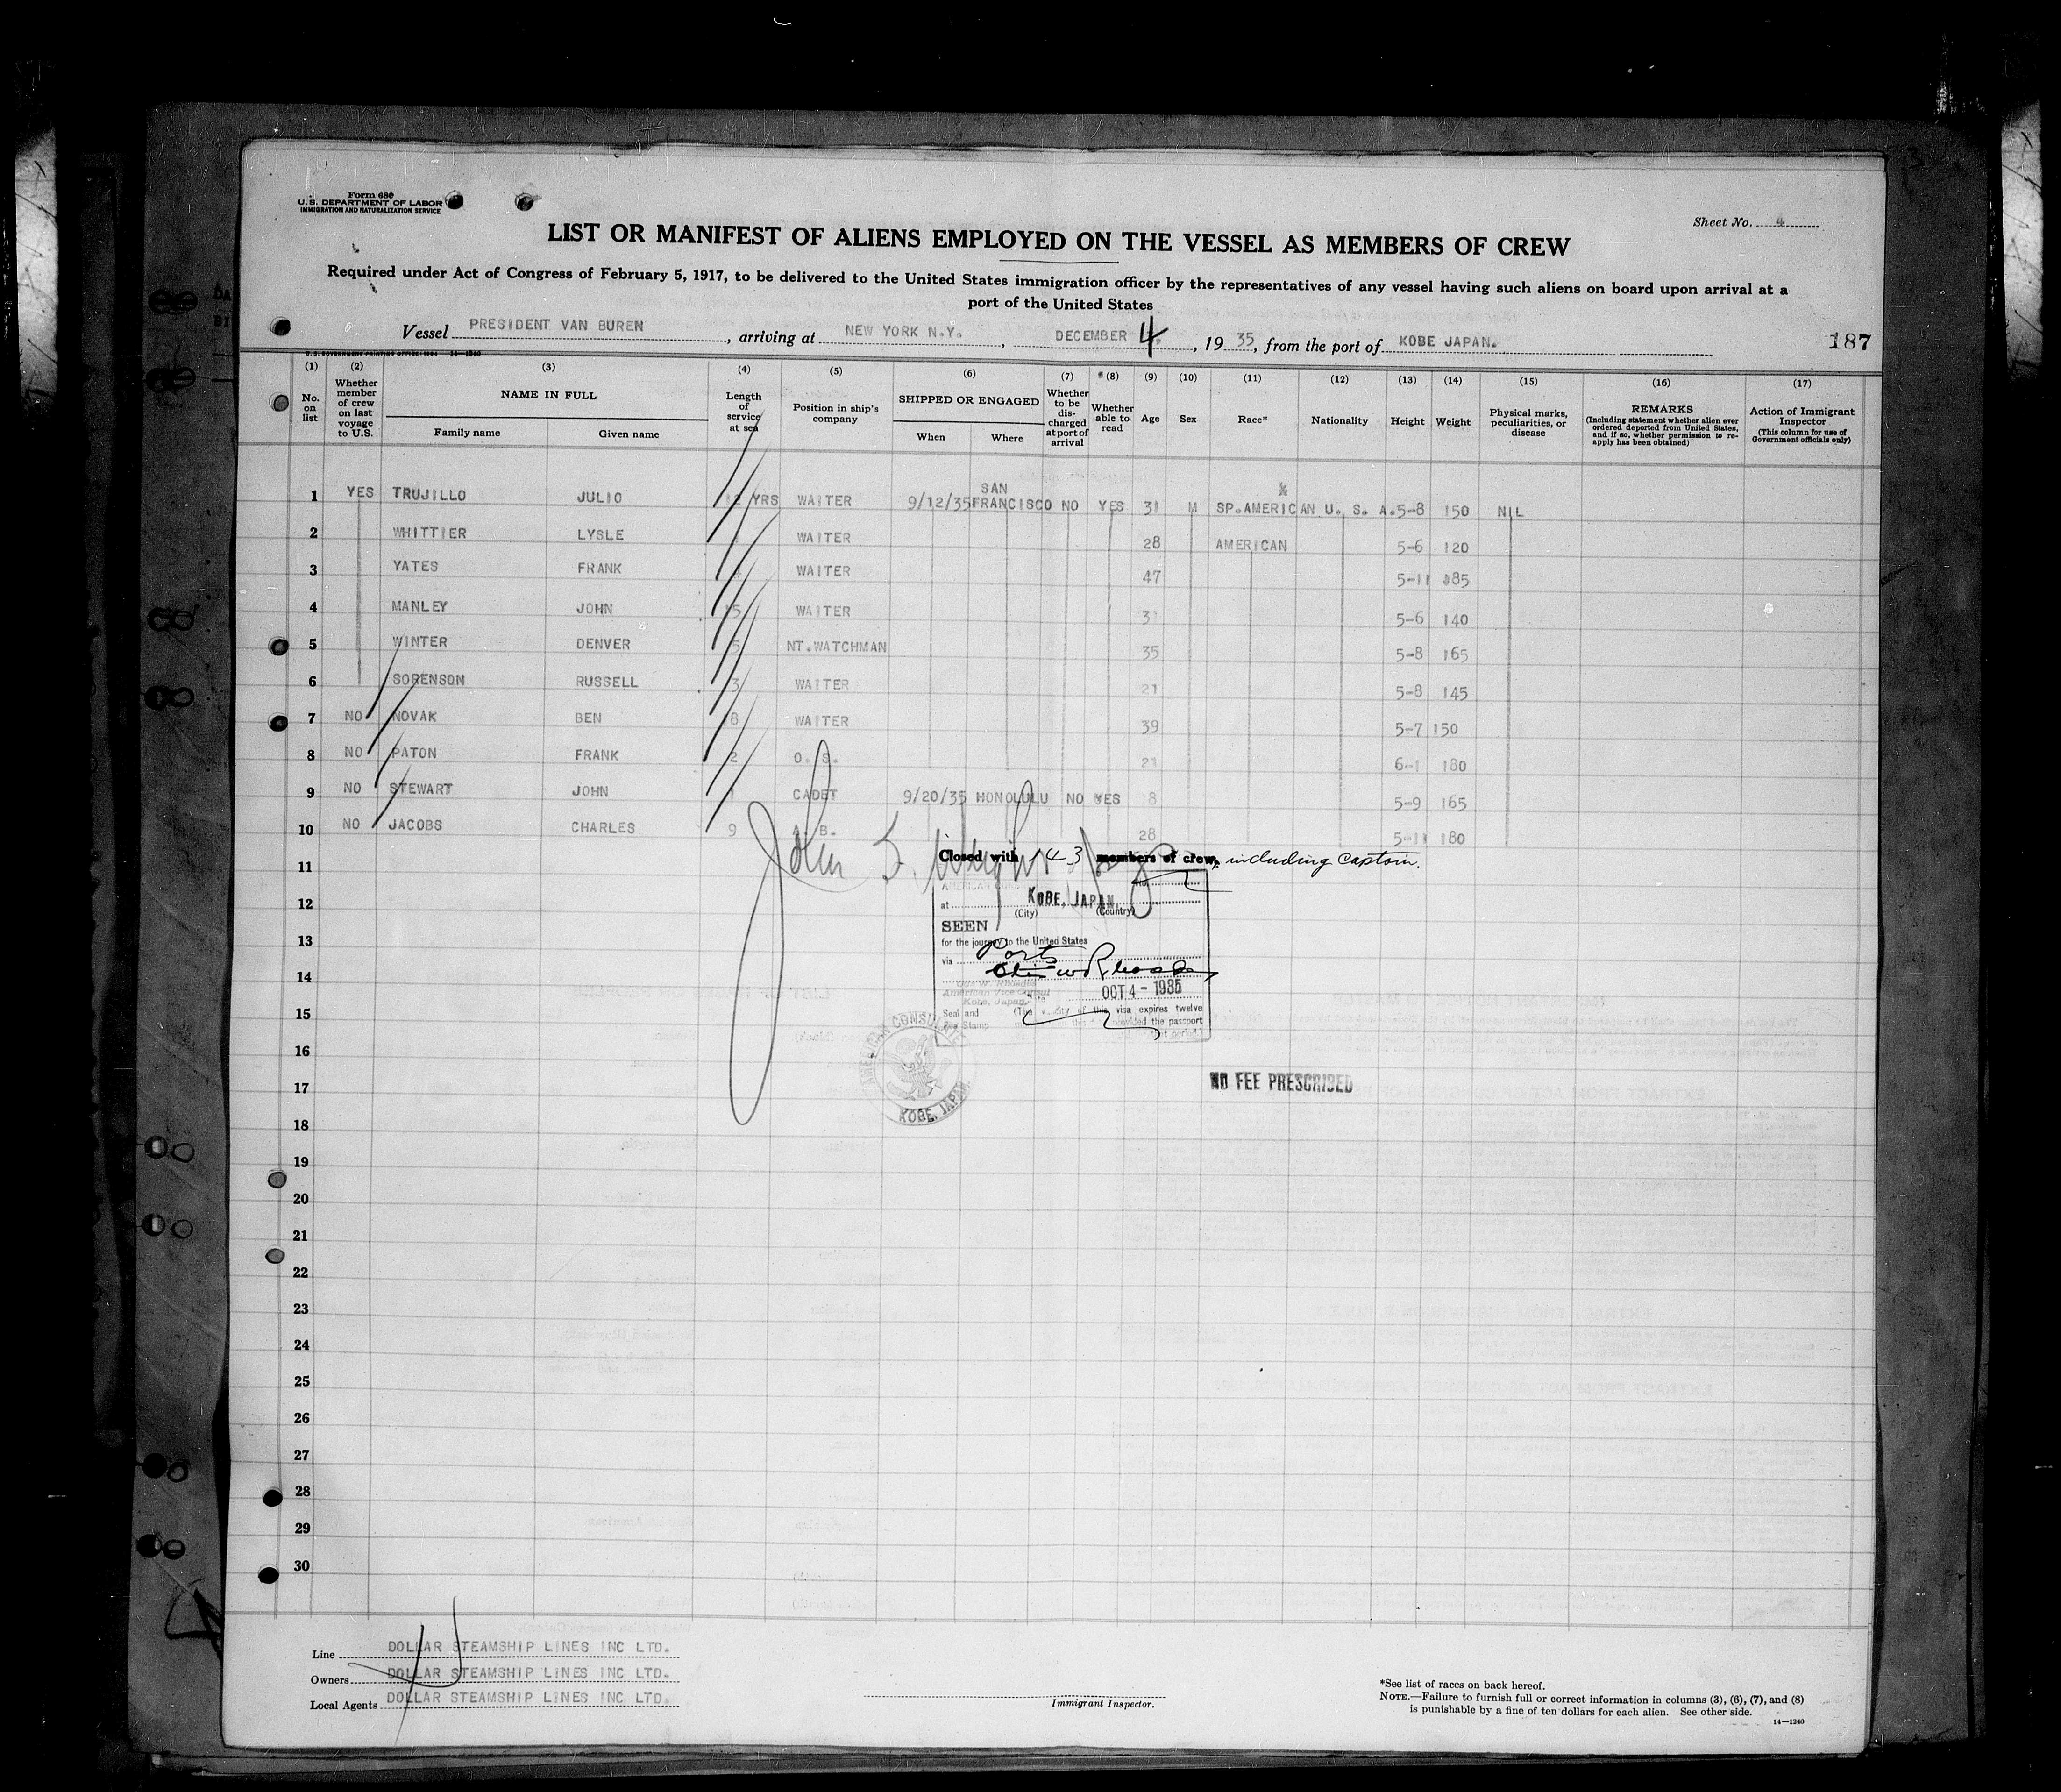 Form 680
U.S. DEPARTMENT OF LABOR
IMMIGRATION AND NATURALIZATION SERVICE
Sheet No. 4
LIST OR MANIFEST OF ALIENS EMPLOYED ON THE VESSEL AS MEMBERS OF CREW
Required under Act of Congress of February 5, 1917, to be delivered to the United States immigration officer by the representatives of any vessel having such aliens on board upon arrival at a
port of the United States
Vessel PRESIDENT VAN BUREN, arriving at NEW YORK N.Y., DECEMBER 4, 1935, from the port of KOBE JAPAN.
187
(1) (2) (3) (4) (5) (6) (7) (8) (9) (10) (11) (12) (13) (14) (15) (16) (17)
No. on list
Whether member of crew on last voyage to U.S.
NAME IN FULL
Family name Given name
Length of service at sea
Position in ship's company
SHIPPED OR ENGAGED
When Where
Whether to be discharged at port of arrival
Whether able to read
Age
Sex
Race*
Nationality
Height
Weight
Physical marks, peculiarities, or disease
REMARKS
(Including statement whether alien ever ordered deported from United States, and if so, whether permission to reapply has been obtained)
Action of Immigrant Inspector
(This column for use of Government officials only)
1 YES TRUJILLO JULIO YRS WAITER 9/12/35 SAN FRANCISCO NO YES 31 M SP.AMERICAN U. S. A. 5-8 150 NIL
2 WHITTIER LYSLE WAITER 28 AMERICAN 5-6 120
3 YATES FRANK WAITER 47 5-11 185
4 MANLEY JOHN WAITER 31 5-6 140
5 WINTER DENVER 5 NT.WATCHMAN 35 5-8 165
6 SORENSON RUSSELL 3 WAITER 21 5-8 145
7 NO NOVAK BEN WAITER 39 5-7 150
8 NO PATON FRANK 2 O. S. 21 6-1 180
9 NO STEWART JOHN CADET 9/20/35 HONOLULU NO YES 5-9 165
10 NO JACOBS CHARLES 9 A. B. 28 5-11 180
11 Closed with 143 members of crew, including captain.
12 at KOBE, JAPAN
(City) (Country)
SEEN
13 for the journey to the United States
via Ports
14
American Vice Consul
Kobe, Japan.
OCT 4 - 1935
15 Seal and
visa expires twelve
provided the passport
AMERICAN CONSULATE
KOBE, JAPAN
16
17 NO FEE PRESCRIBED
18
19
20
21
22
23
24
25
26
27
28
29
30
Line DOLLAR STEAMSHIP LINES INC LTD.
Owners DOLLAR STEAMSHIP LINES INC LTD.
Local Agents DOLLAR STEAMSHIP LINES INC LTD.
Immigrant Inspector.
*See list of races on back hereof.
NOTE.—Failure to furnish full or correct information in columns (3), (6), (7), and (8)
is punishable by a fine of ten dollars for each alien. See other side.
14—1240